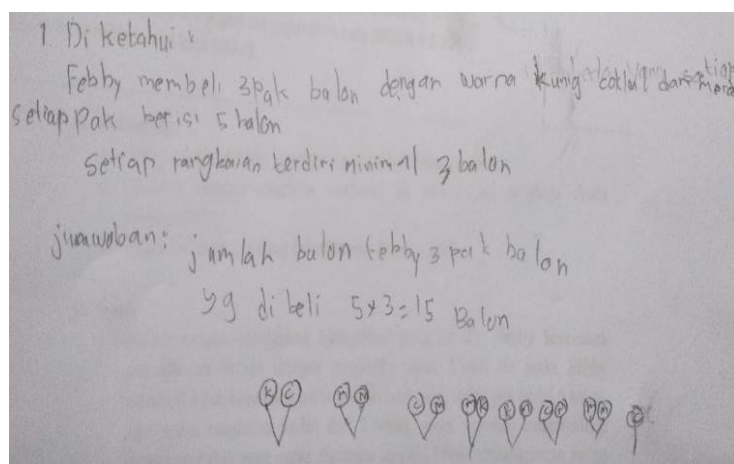 1. Diketahui :
Febby membeli 3 pak balon dengan warna kunig coklat dan mera
setiap Pak berisi 5 balon
setiap rangkaian terdiri minimal 3 balon
juawaban: jumlah balon febby 3 pak balon
yg di beli 5x3=15 Balon
K C M M C M M K K M C C M M C